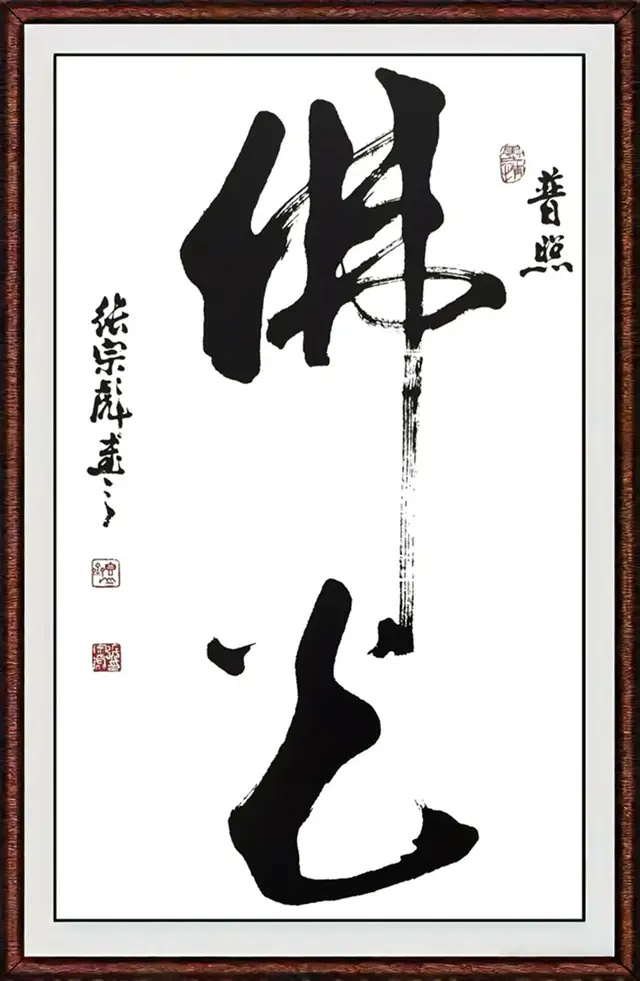 佛光
普照
张宗彪书